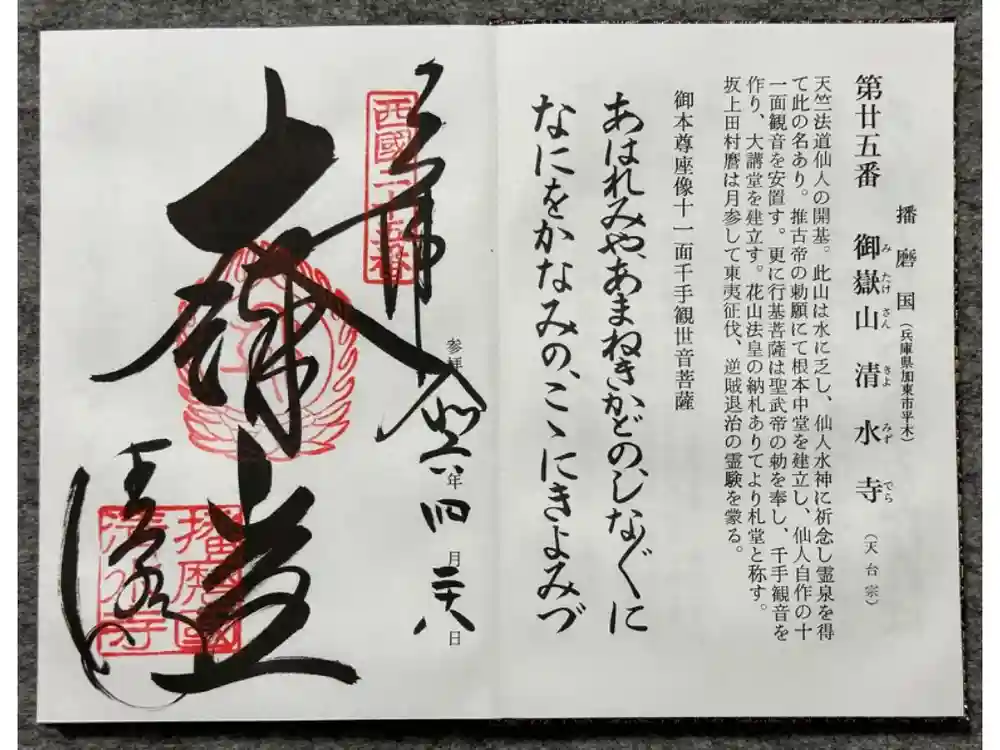 播磨国(兵庫県加東市平木)
第廿五番 御嶽山 清水寺(天台宗)
みたけさん きよみずでら
天竺法道仙人の開基。此山は水に乏し、仙人水神に祈念し霊泉を得
て此の名あり。推古帝の勅願にて根本中堂を建立し、仙人自作の十
一面観音を安置す。更に行基菩薩は聖武帝の勅を奉し、千手観音を
作り、大講堂を建立す。花山法皇の納札ありてより札堂と称す。
坂上田村麿は月参して東夷征伐、逆賊退治の霊験を蒙る。
御本尊座像十一面千手観世音菩薩
あはれみやあまねきかどの、しなぐに
なにをかなみの、こゝにきよみづ
参拝 令和六年四月二十八日
奉拝
西國二十五番
大講堂
清水寺
播磨國
清水寺